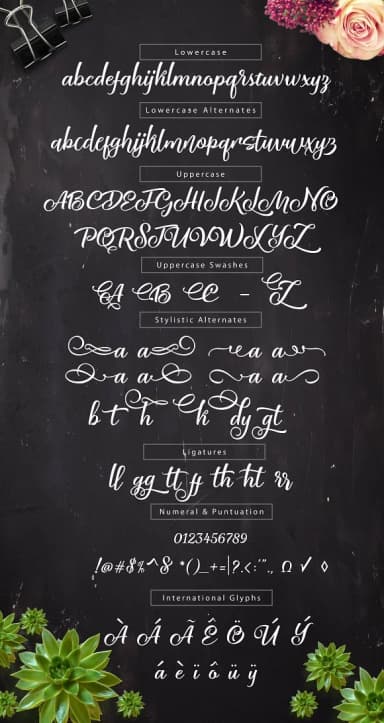 Lowercase
abcdefghijklmnopqrstuvwxyz
Lowercase Alternates
abcdefghijklmnopqrstuvwxyz
Uppercase
ABCDEFGHIJKLMNO
PQRSTUVWXYZ
Uppercase Swashes
A B C - Z
Stylistic Alternates
a a a a
a a a a
b t h k dy gt
Ligatures
ll gg tt ff th ht rr
Numeral & Puntuation
0123456789
!@#$%^& *()_+=|?.<:'"., Ω ✓ ◊
International Glyphs
À Á Ã Ê Ö Ú Ý
á è ï ô ü ÿ